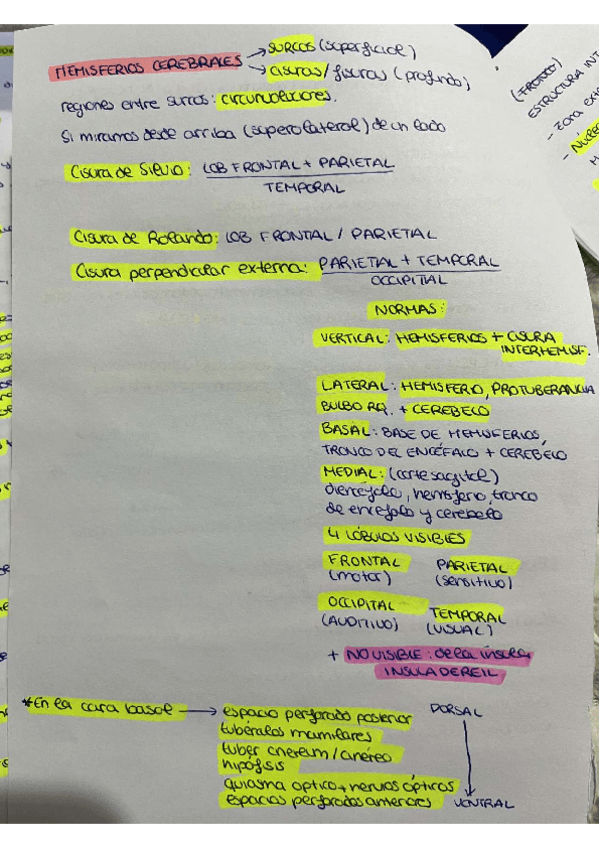 HEMISFERIOS CEREBRALES → SURCOS (superficial)
→ cisuras / fisuras (profundo)
regiones entre surcos: circunvoluciones.
Si miramos desde arriba (superolateral) de un lado
Cisura de Silvio: LOB FRONTAL + PARIETAL
TEMPORAL
Cisura de Rolando: LOB FRONTAL / PARIETAL
Cisura perpendicular externa: PARIETAL + TEMPORAL
OCCIPITAL
NORMAS:
VERTICAL: HEMISFERIOS + CISURA
INTERHEMISF.
LATERAL: HEMISFERIO, PROTUBERANCIA
BULBO RQ. + CEREBELO
BASAL: BASE DE HEMISFERIOS,
TRONCO DEL ENCÉFALO + CEREBELO
MEDIAL: (corte sagital)
diencéfalo, hemisferio, tronco
de encefalo y cerebelo
4 LÓBULOS VISIBLES
FRONTAL PARIETAL
(motor) (sensitivo)
OCCIPITAL TEMPORAL
(AUDITIVO) (VISUAL)
+ NO VISIBLE: de la ínsula
INSULA DE REIL
*En la cara basal → espacio perforado posterior DORSAL
tubérculos mamilares
tuber cinereum / cinéreo
hipófisis
quiasma optico + nervios ópticos
espacios perforados anteriores VENTRAL
(TROZO)
ESTRUCTURA INT
- Zona ext
- Núcleo